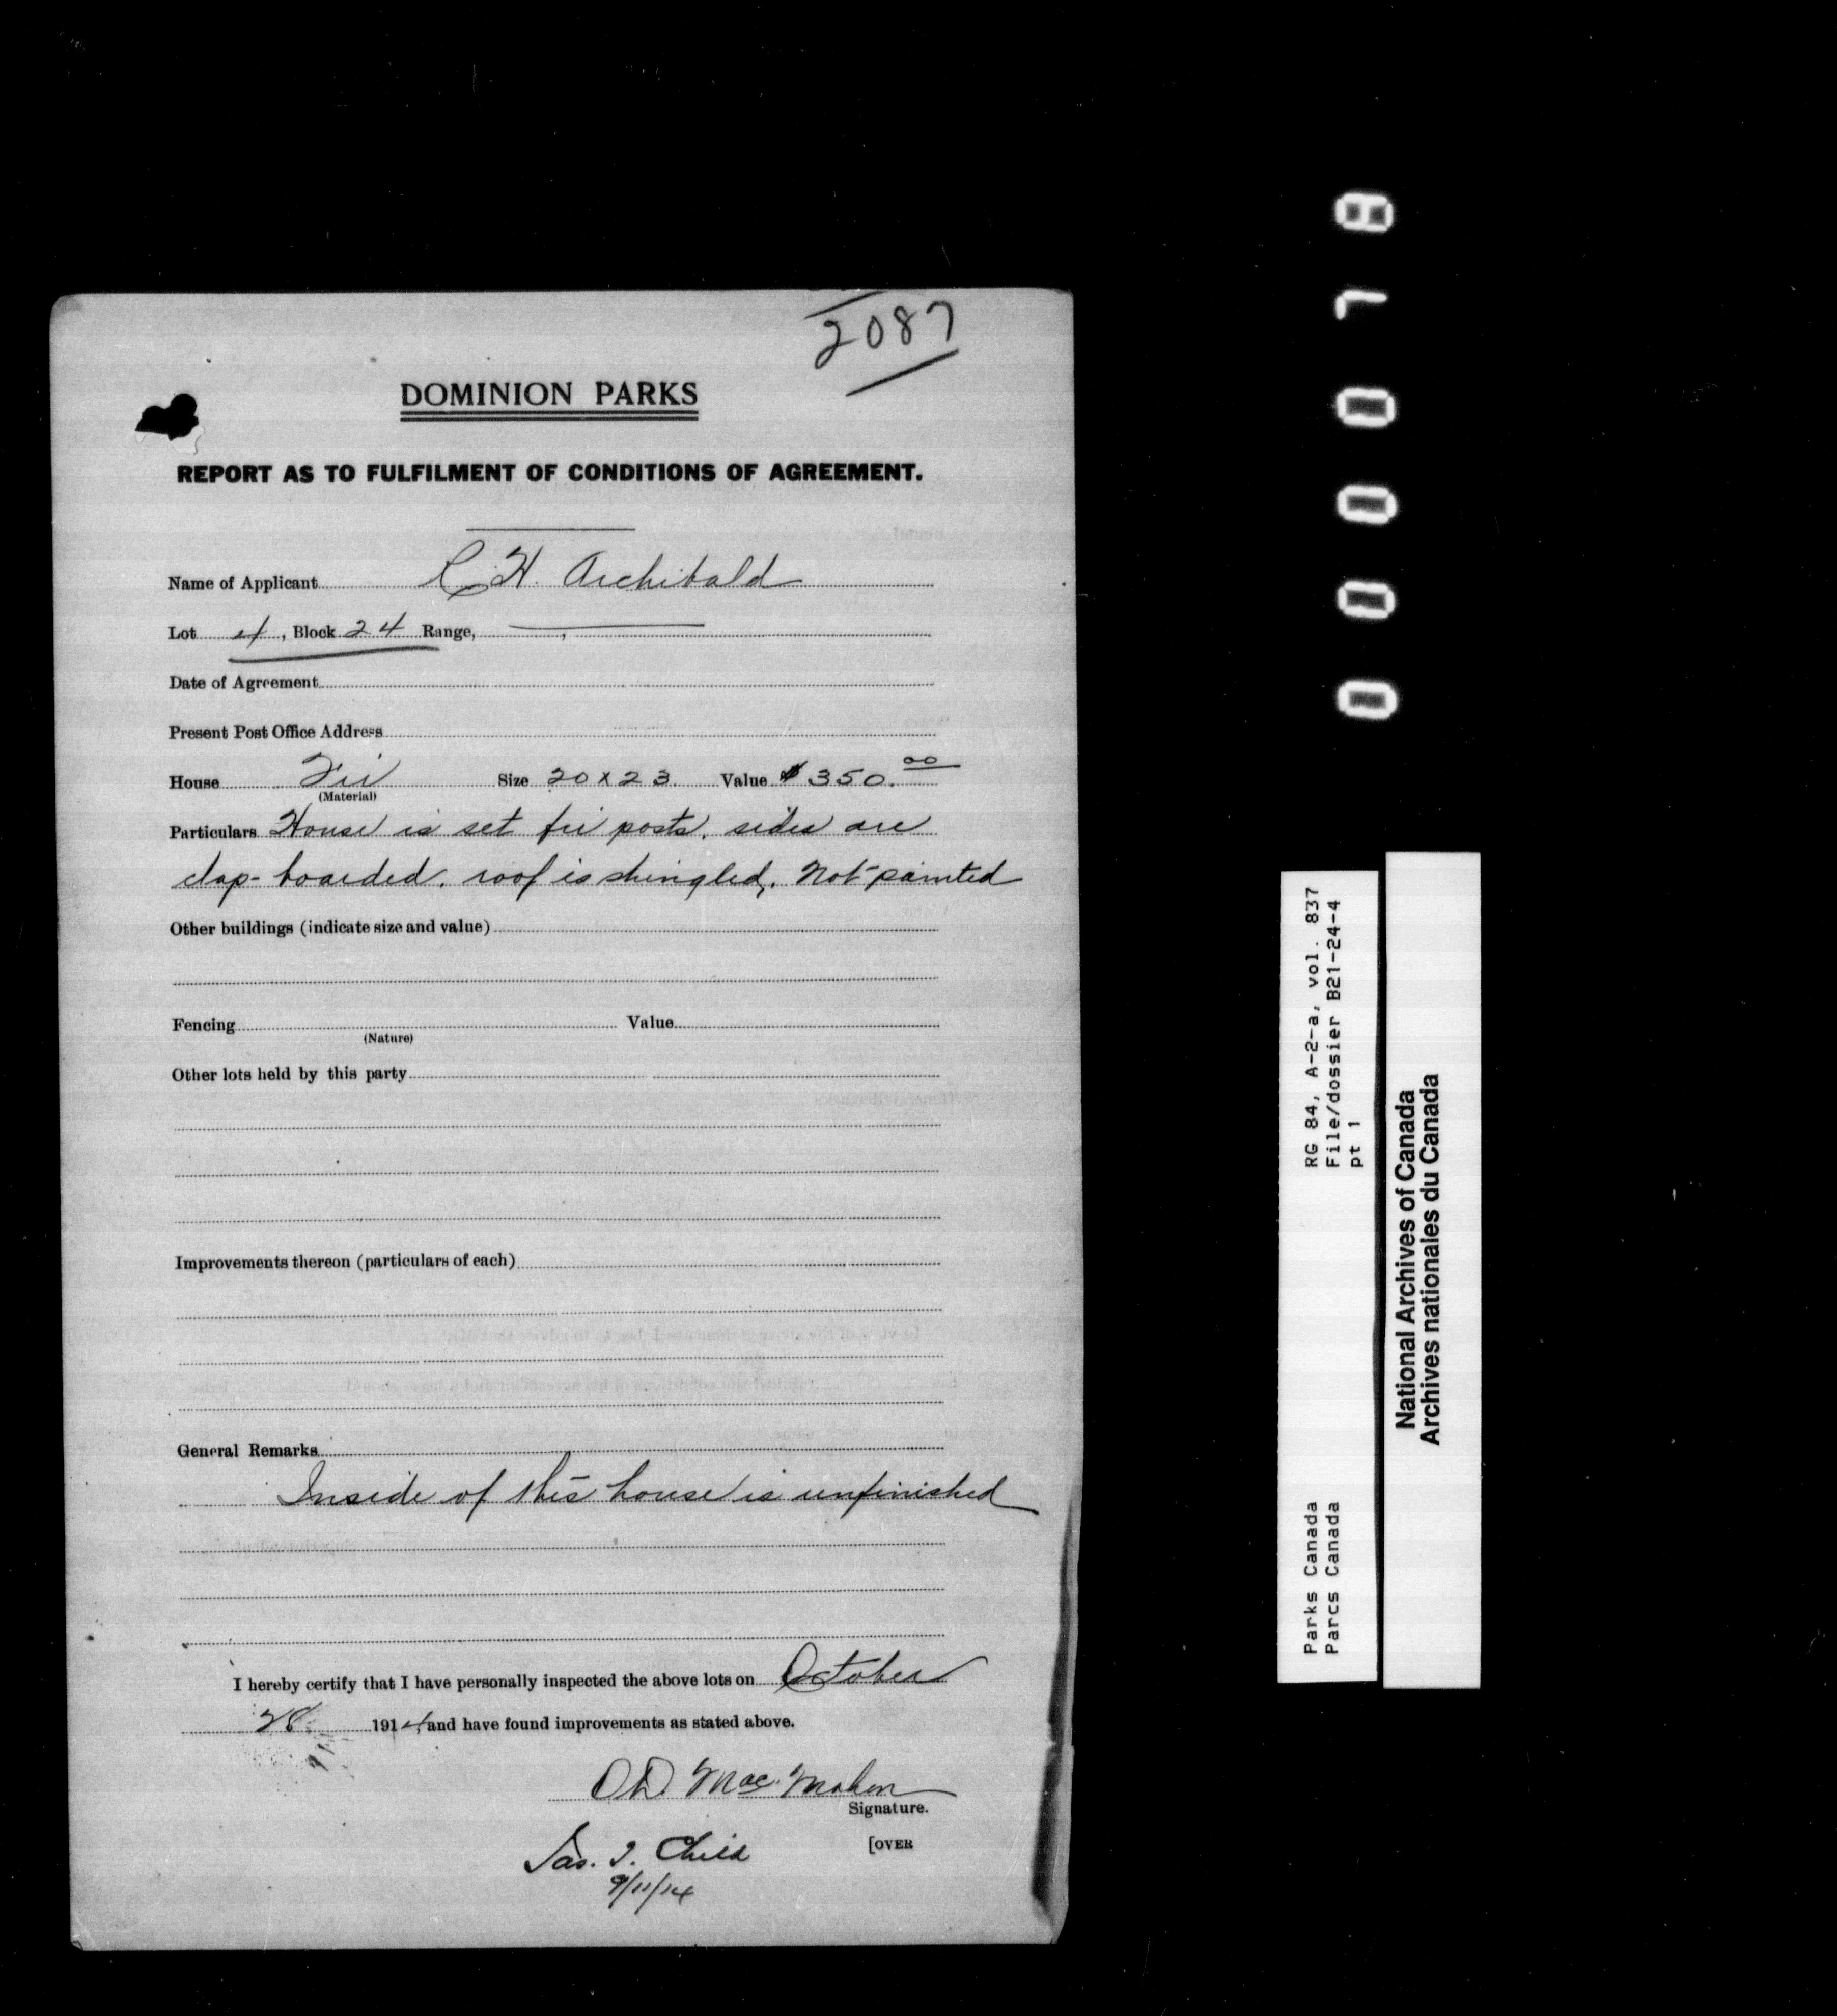 2087
DOMINION PARKS
REPORT AS TO FULFILMENT OF CONDITIONS OF AGREEMENT.
Name of Applicant C. H. Archibald
Lot 4, Block 24 Range,
Date of Agreement
Present Post Office Address
House Fir Size 20 x 23. Value $350.00
(Material)
Particulars House is set fir posts. sides are
clap-boarded. roof is shingled. Not painted
Other buildings (indicate size and value)
Fencing Value
(Nature)
Other lots held by this party
Improvements thereon (particulars of each)
General Remarks
Inside of this house is unfinished
I hereby certify that I have personally inspected the above lots on October
28 1914, and have found improvements as stated above.
MacMahon
Signature.
[OVER
Jas. I. Child
9/11/14
000078
RG 84, A-2-a, vol. 837
File/dossier B21-24-4
pt 1
Parks Canada
Parcs Canada
National Archives of Canada
Archives nationales du Canada